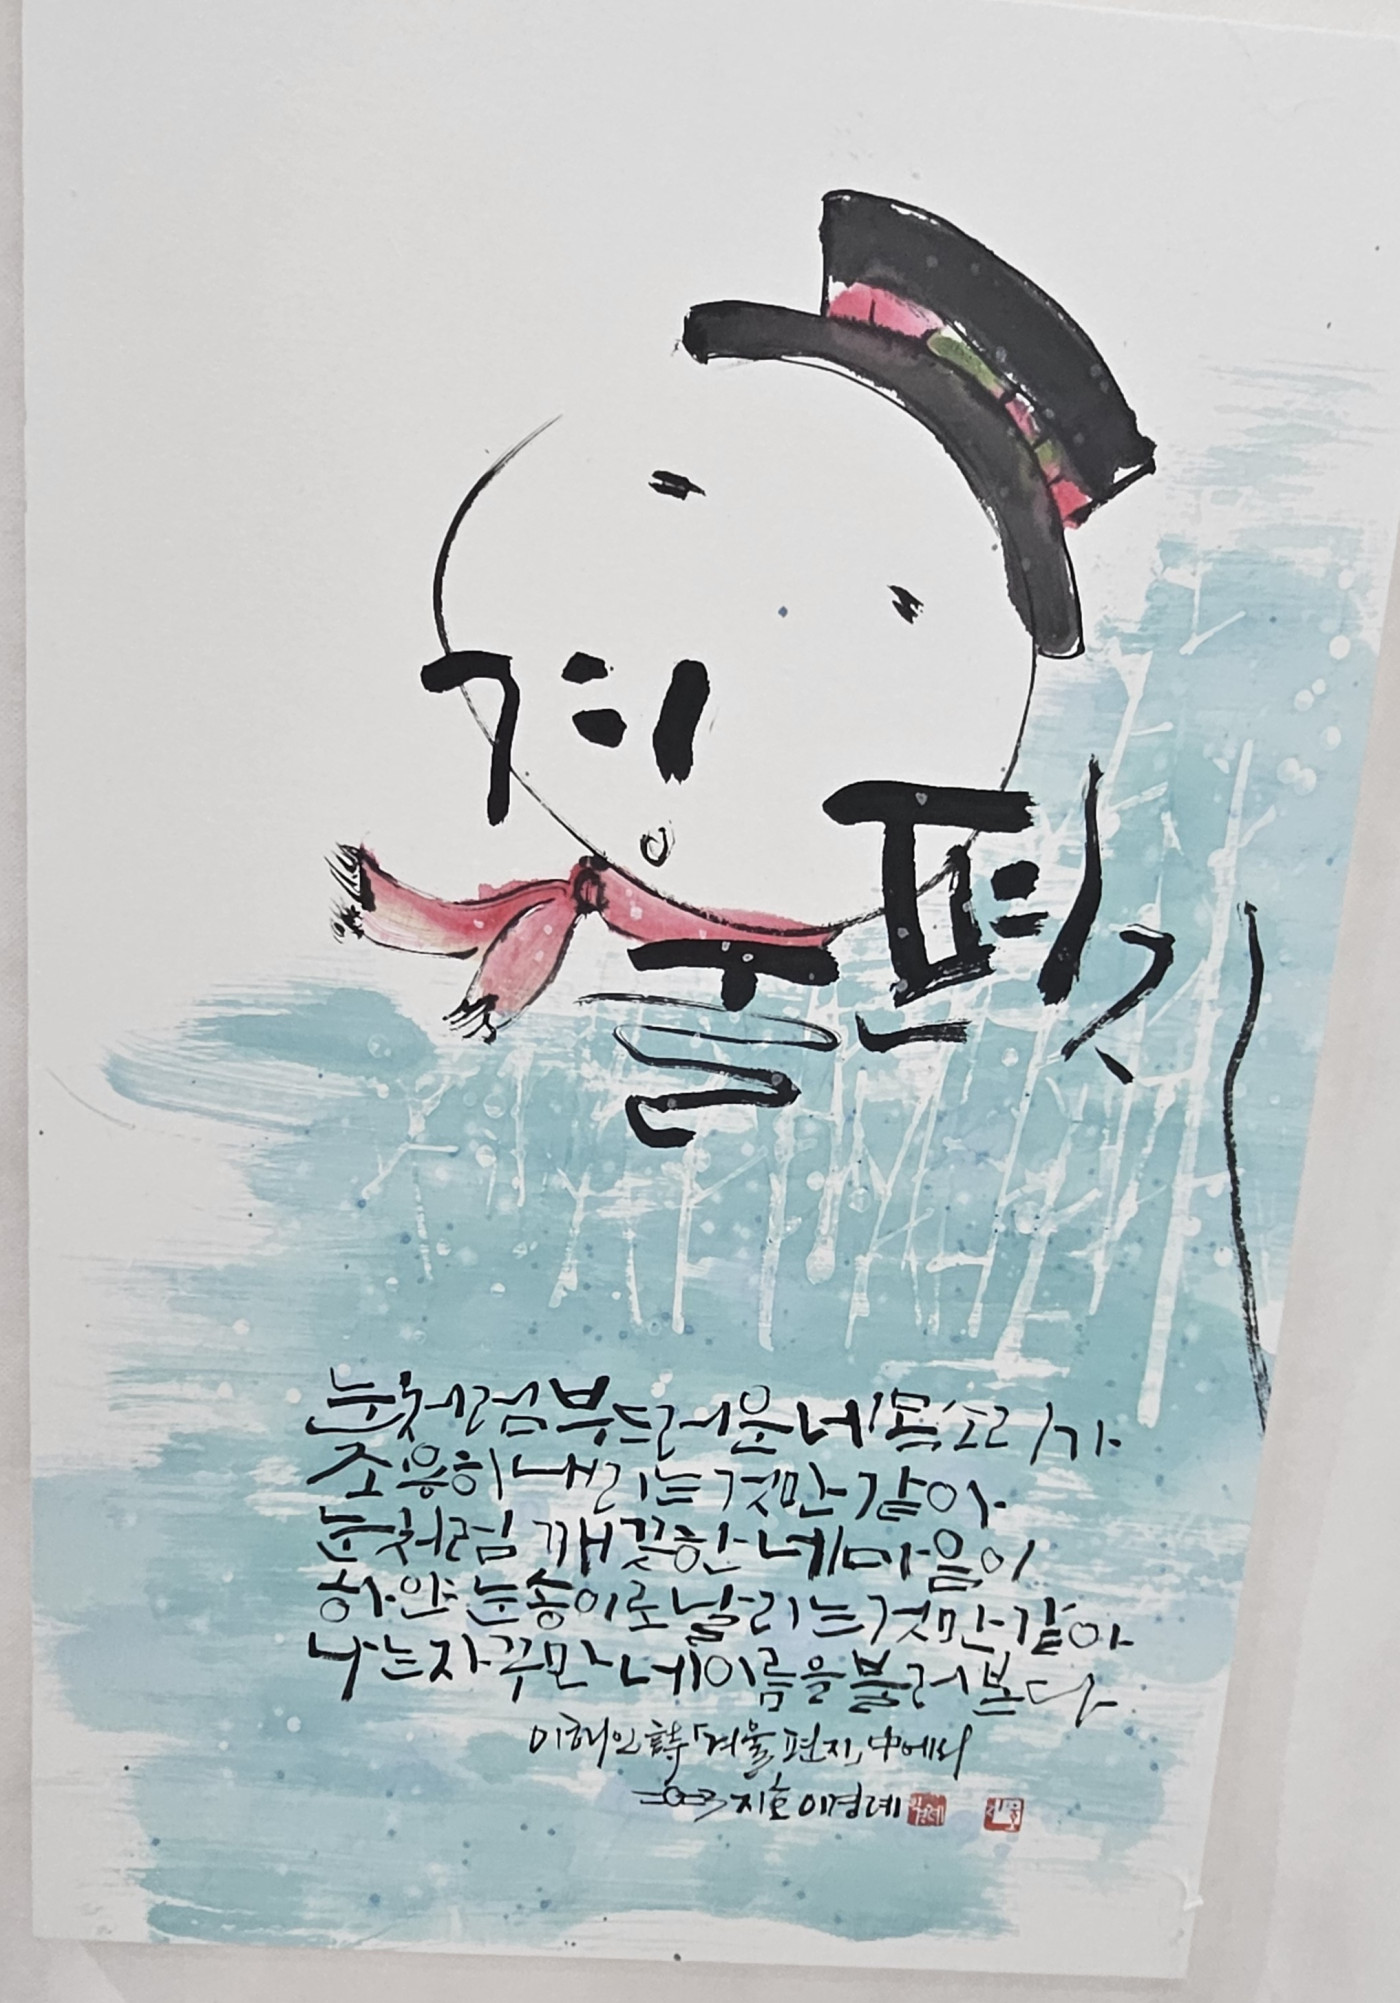 겨울 편지
눈처럼 부드러운 네 목소리가
조용히 내리는 것만 같아
눈처럼 깨끗한 네 마음이
하얀 눈송이로 날리는 것만 같아
나는 자꾸만 네 이름을 불러본다
이해인 詩「겨울 편지」中에서
지호 이경례